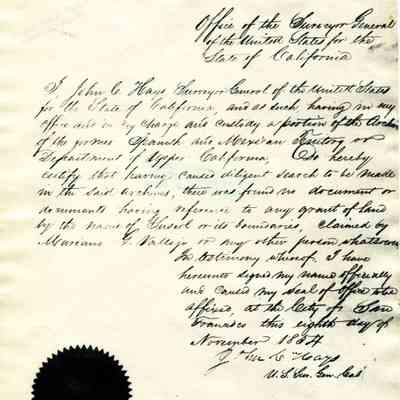 Office of the Surveyor General
of the United States for the
State of California
I, John C. Hays Surveyor General of the United States
for the State of California, and as such having in my
office and in my charge and custody a portion of the Archives
of the former Spanish and Mexican Territory or
Department of Upper California, Do hereby
certify that having caused diligent search to be made
in the said archives, there was found no document or
documents having reference to any grant of land
by the name of Suscol or its boundaries, claimed by
Mariano G. Vallejo or any other person whatsoever
In testimony whereof I have
hereunto signed my name officially
and caused my seal of office to be
affixed, at the City of San
Francisco this eighth day of
November 1854
Jno C Hays
U.S. Sur. Gen. Cal